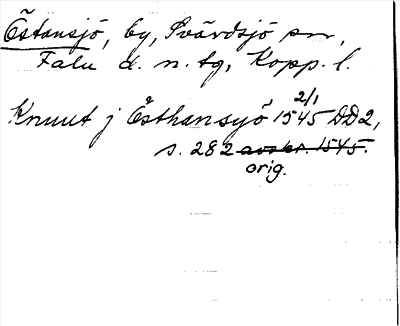 Östansjö, by, Svärdsjö sn,
Falu d. n. tg, Kopp. l.
Knuut j Östhansyö 2/1 1545 DD2,
s. 282 avskr. 1545.
orig.